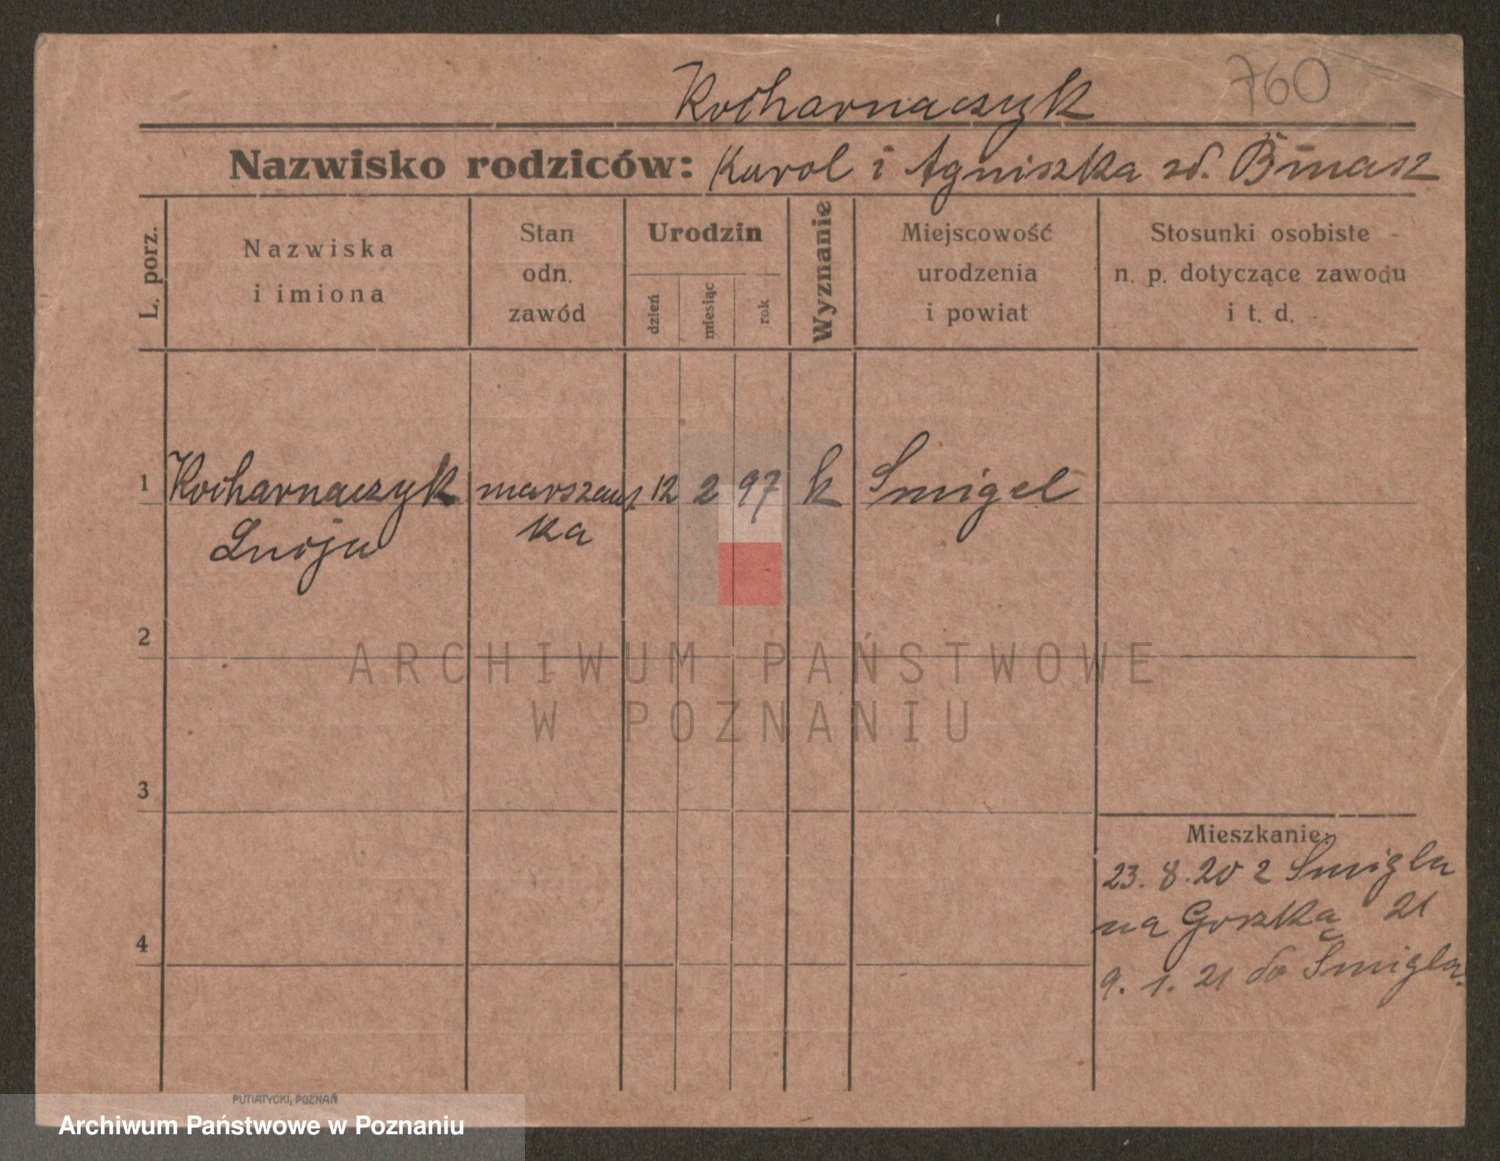 760
Kocharnaczyk
Nazwisko rodziców: Karol i Agniszka zd. Binasz
L. porz.
Nazwiska
i imiona
Stan
odn.
zawód
Urodzin
dzień
miesiąc
rok
Wyznanie
Miejscowość
urodzenia
i powiat
Stosunki osobiste
n. p. dotyczące zawodu
i t. d.
1 Kocharnaczyk 12 2 97 k Smigel
ka
2
3
Mieszkanie:
23. 8. 20 z Smigla
na Gorzka 21
4
9. 1. 21 do Smigla.
ARCHIWUM PAŃSTWOWE
W POZNANIU
PUTIATYCKI, POZNAŃ
Archiwum Państwowe w Poznaniu